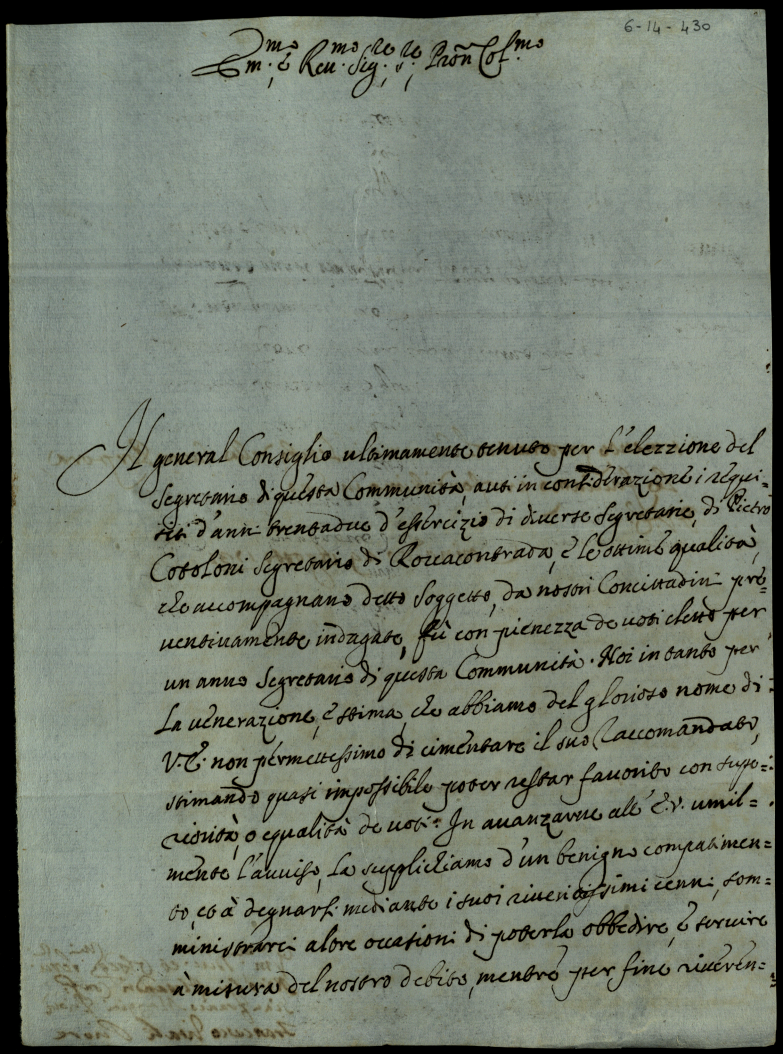 6-14-430
Em.mo è Reu.mo Sig.re e re Prōn Col.mo
Il general Consiglio ultimamente tenuto per l'elezzione del
Segretario di questa Communità, auti in considerazione i requi-
siti d'anni trentadue d'essercizio di diverse Segretarie, di Pietro
Cotoloni Segretario di Roccacontrada, è le ottime qualità,
che accompagnano detto Soggetto, da nostri Concittadini pre-
ventivamente indagate, fù con pienezza de voti eletto per
un anno Segretario di questa Communità. Noi in tanto per
la venerazione, è stima, che abbiamo del glorioso nome di
V.E. non permettessimo di cimentare il suo Raccomandato,
stimando quasi impossibile poter restar favorito con supe-
riorità, o equalità de voti. In auanzarne all'E.V. umil-
mente l'auuiso, la supplichiamo d'un benigno compatimen-
to, et à degnarsi mediante i suoi riueritissimi cenni, som-
ministrarci altre occasioni di poterla obbedire, è seruire
à misura del nostro debito, mentre per fine riueren-